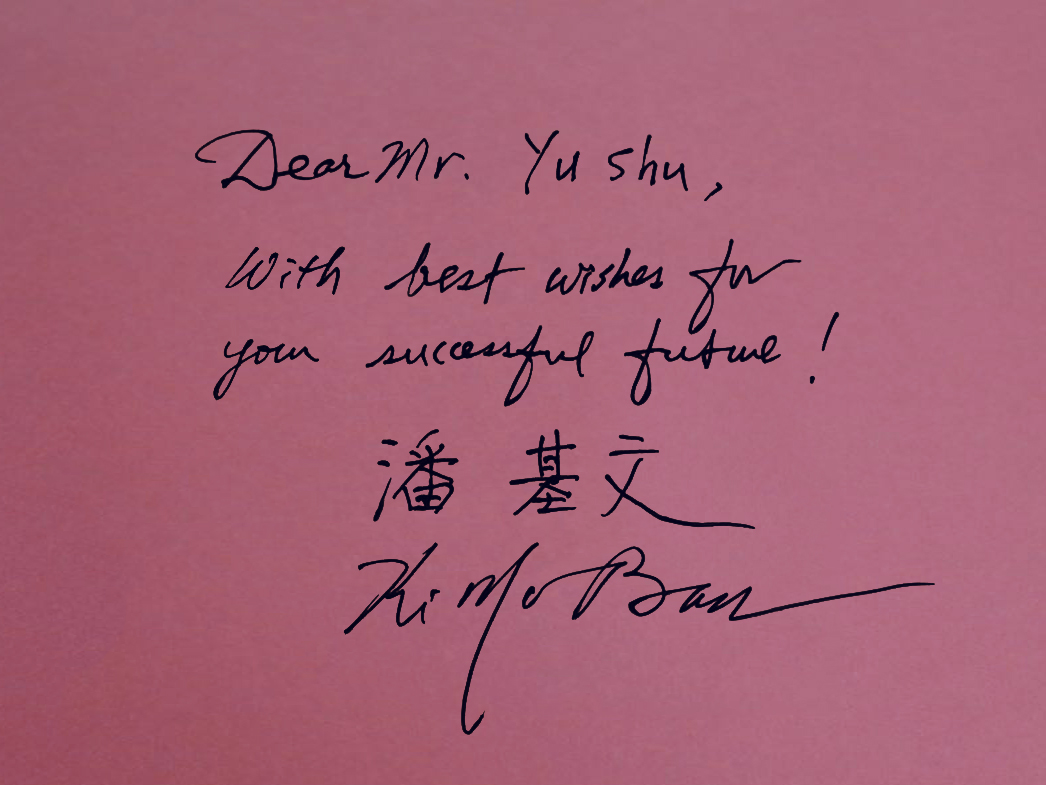 Dear Mr. Yu Shu,
With best wishes for
your successful future!
潘 基文
Ki Mo Ban